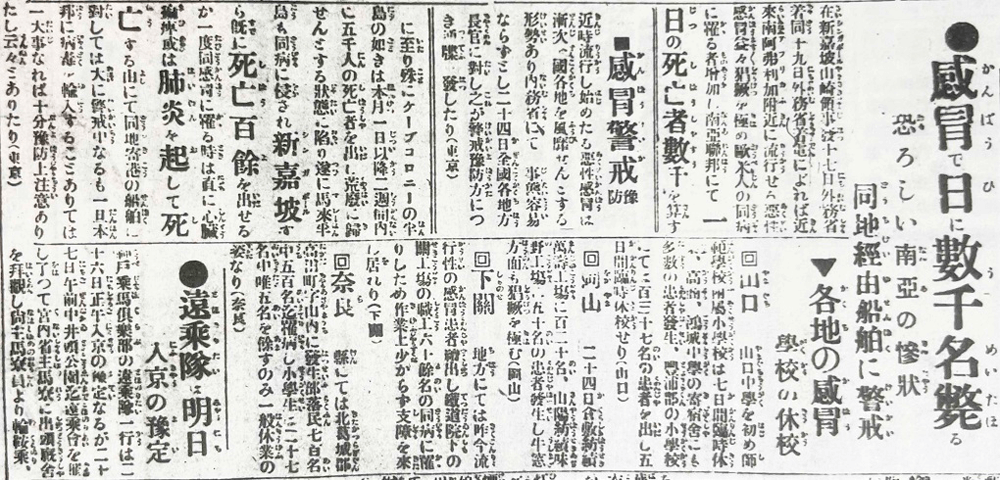 ●感冒で日に數千名斃る
恐ろしい南亞の慘狀
同地經由船舶に警戒
在新嘉坡山崎領事發十七日外務省
着同十九日外務省着電によれば近
來南阿弗利加附近に流行せる惡性
感冒益々猖獗を極め歐米人の同病
に罹る者增加し南亞聯邦にて一
日の死亡者數千を算す
■感冒警戒
豫防
近時流行し始めたる惡性感冒は
漸次全國各地を風靡せんとする
形勢あり內務省にても事態容易
ならずとし二十四日全國各地方
長官に對し之が警戒豫防方につ
き通牒を發したり(東京)
に至り殊にケープコロニーの半
島の如きは本月一日以降二週間內
に五千人の死亡者を出し荒廢に歸
せんとする狀態に陷り遂に馬來半
島も同病に侵され新嘉坡す
ら既に死亡百餘を出せる
が一度同感冒に罹る時は直に心臟
痲痺或は肺炎を起して死
亡する由にて同地寄港の船舶に
對しては大に警戒中なるも一旦本
邦に病毒を輸入することありては
一大事なれば十分豫防上注意あり
たし云々とありたり(東京)
▼各地の感冒
學校の休校
回山口 山口中學を初め師
範學校同附屬小學校は七日間臨時休
校、高商、鴻城中學の寄宿舍にも
多數の患者發生、興浦部の小學校
にて百三十七名の患者を出し五
日間臨時休校せり(山口)
回岡山 二十四日倉敷紡績
萬壽工場に百二十名、山陽紡績味
野工場に五十名の患者發生し牛窓
方面も猖獗を極む(岡山)
回下關 地方にては昨今流
行性の感冒患者續出し鐵道院下の
關工場の職工六十餘名の同病に罹
りしため作業上少からず支障を來
し居れり(下關)
回奈良 縣にては北葛城郡
高田町字山內に發生部落民七百名
中五百名迄罹病し小學生二十七
名中唯五名を餘すのみ一般休業の
姿なり(奈良)
●遠乘隊は明日
入京の豫定
神戶乘馬俱樂部の遠乘隊一行は二
十六日正午入京の豫定なるが二十
七日午前中牛頭公園迄遠乘會を催
し終つて宮內省主馬寮に出頭廐舍
を拜觀し尙主馬寮員より輪鞍乘